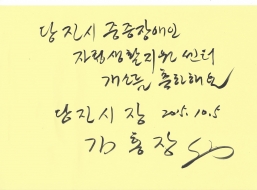 당진시 중증장애인
자립생활지원 센터
개소를 축하해요
당진시 장 2015.10.5
김홍장